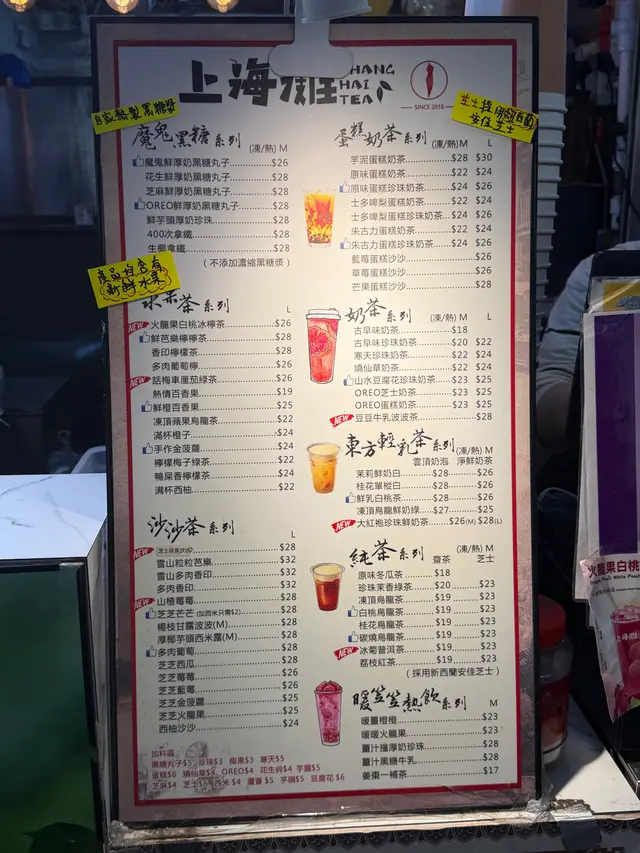 上海街 SHANG
HAI
TEA
SINCE 2018
自家熬製黑糖漿
芝士採用紐西蘭
安佳芝士
魔鬼黑糖系列 (凍/熱) M
魔鬼鮮厚奶黑糖丸子 $26
花生鮮厚奶黑糖丸子 $28
芝麻鮮厚奶黑糖丸子 $28
OREO鮮厚奶黑糖丸子 $28
鮮芋頭厚奶珍珠 $28
400次拿鐵 $28
生椰拿鐵 $28
(不添加濃縮黑糖漿)
產品均含有
新鮮水果
冰茶系列 L
NEW 火龍果白桃冰檸茶 $26
鮮芭樂檸檸茶 $28
香印檸檬茶 $28
多肉葡萄檸 $26
NEW 話梅車厘茄綠茶 $26
熱情百香果 $19
鮮橙百香果 $25
凍頂蘋果烏龍茶 $22
滿杯橙子 $24
手作金菠蘿 $24
檸檬梅子綠茶 $22
鴨屎香檸檬茶 $24
滿杯西柚 $22
沙沙茶系列 L
NEW $28
雪山粒粒芭樂 $32
雪山多肉香印 $32
多肉香印 $28
NEW 山楂莓莓 $28
芝芝芒芒(加西米只需$2) $28
楊枝甘露波波(M) $28
厚椰芋頭西米露(M) $28
多肉葡萄 $28
芝芝西瓜 $28
芝芝莓莓 $26
芝芝藍莓 $26
芝芝金菠蘿 $25
芝芝火龍果 $25
西柚沙沙 $24
加料區:
黑糖丸子$5 珍珠$3 椰果$3 寒天$5
蛋糕$6 燒仙草$4 OREO$4 花生碎$4 芋圓$5
芝麻$4 芝士$6 西米$4 蘆薈$5 芋頭$5 豆腐花$6
蛋糕奶茶系列 (凍/熱)M L
芋泥蛋糕奶茶 $28 $30
原味蛋糕奶茶 $22 $24
原味蛋糕珍珠奶茶 $24 $26
士多啤梨蛋糕奶茶 $22 $24
士多啤梨蛋糕珍珠奶茶 $24 $26
朱古力蛋糕奶茶 $22 $24
朱古力蛋糕珍珠奶茶 $24 $26
藍莓蛋糕沙沙 $26
草莓蛋糕沙沙 $26
芒果蛋糕沙沙 $28
奶茶系列 (凍/熱) M L
古早味奶茶 $18
古早味珍珠奶茶 $20 $22
寒天珍珠奶茶 $22 $24
燒仙草奶茶 $22 $24
山水豆腐花珍珠奶茶 $23 $25
OREO芝士奶茶 $23 $25
OREO蛋糕奶茶 $23 $25
NEW 豆豆牛乳波波茶 $28
東方輕乳茶系列 (凍/熱) M
雲頂奶泡 淨鮮奶茶
茉莉鮮奶白 $28 $26
桂花單樅白 $28 $26
鮮乳白桃茶 $28 $26
凍頂烏龍鮮奶綠 $27 $25
NEW 大紅袍珍珠鮮奶茶 $26(M) $28(L)
純茶系列 (凍/熱) M
齋茶 芝士
原味冬瓜茶 $18
珍珠茉香綠茶 $20 $23
凍頂烏龍茶 $19 $23
白桃烏龍茶 $19 $23
桂花烏龍茶 $19 $23
碳燒烏龍茶 $19 $23
NEW 冰菊普洱茶 $19 $23
荔枝紅茶 $19 $23
(採用新西蘭安佳芝士)
暖笠笠熱飲系列 M
暖薑橙橙 $23
暖暖火龍果 $23
薑汁撞厚奶珍珠 $28
薑汁黑糖牛乳 $28
姜棗一桶茶 $17
火龍果白桃